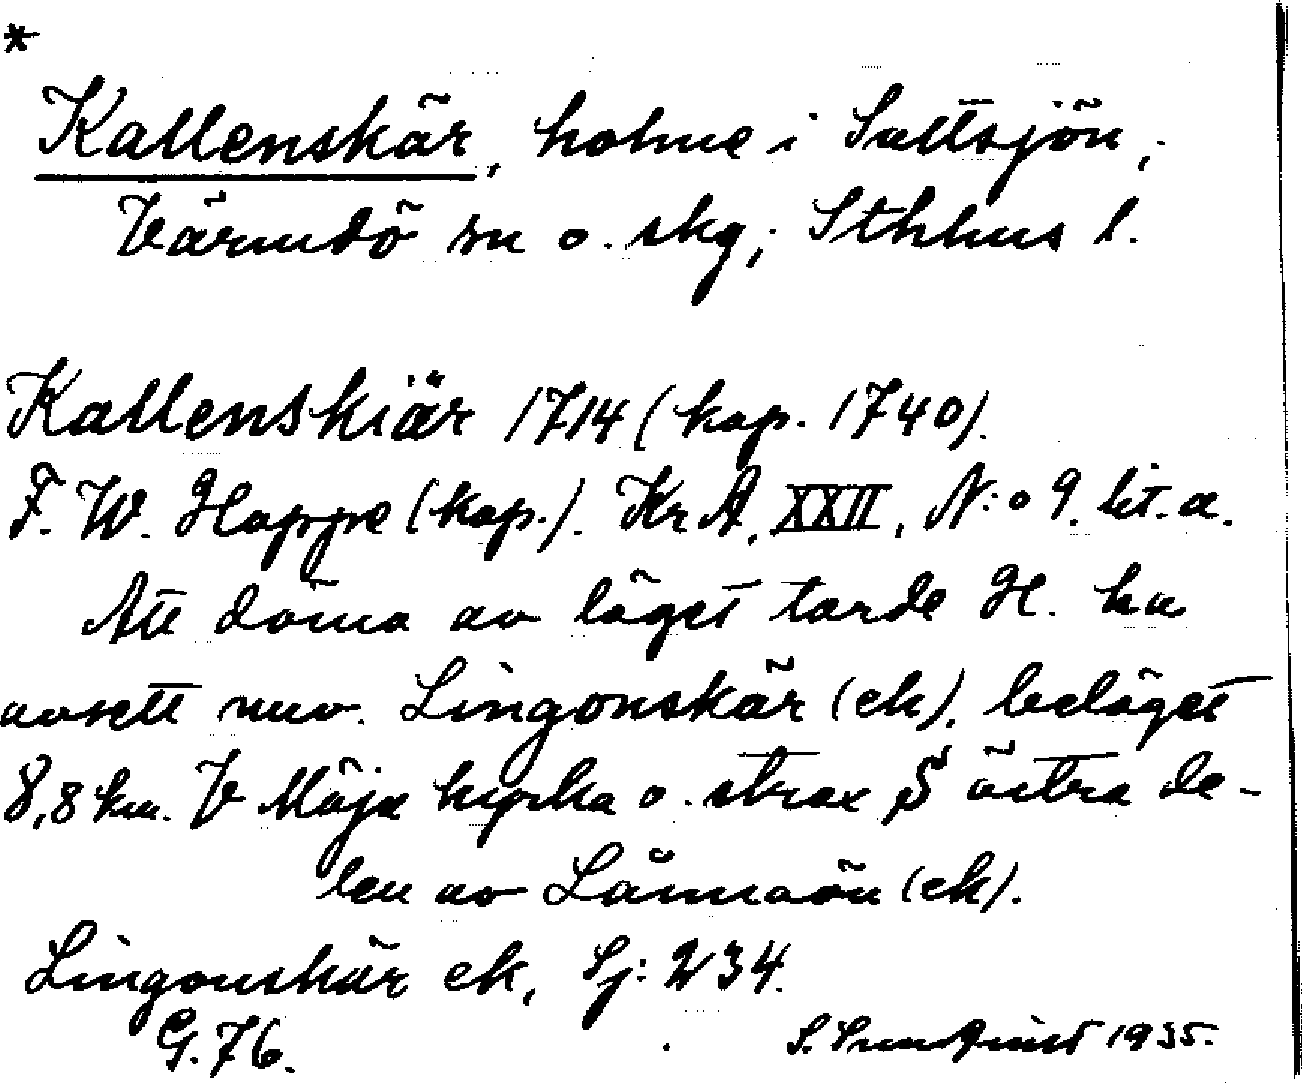 *
Kallenskär, holme i Saltsjön,
Värmdö sn o. skg, Sthlms l.
Kallenskiär 1714 (kop. 1740).
F. W. Hoppe (kop.). Kr A, XXII, N:o 9. lit. a.
Att döma av läget torde H. ha
avsett nuv. Lingonskär (ek), beläget
8,8 km. V Möja kyrka o. strax S östra de-
len av Lännaön (ek).
Lingonskär ek, Sj: 234.
G. 76.
S. 1935.